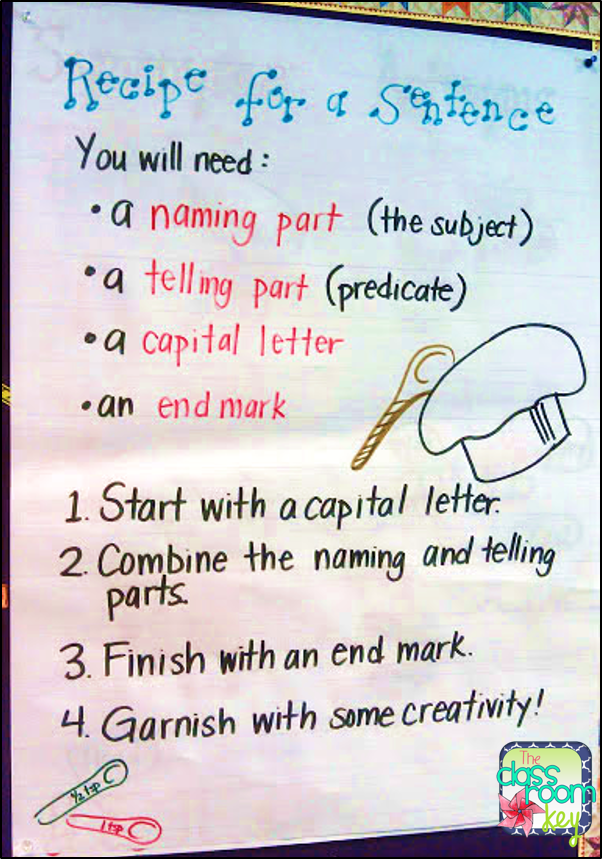 Recipe for a Sentence
You will need:
• a naming part (the subject)
• a telling part (predicate)
• a capital letter
• an end mark
1. Start with a capital letter.
2. Combine the naming and telling
parts.
3. Finish with an end mark.
4. Garnish with some creativity!
1/2 tsp
1 tsp
The
class
room
key